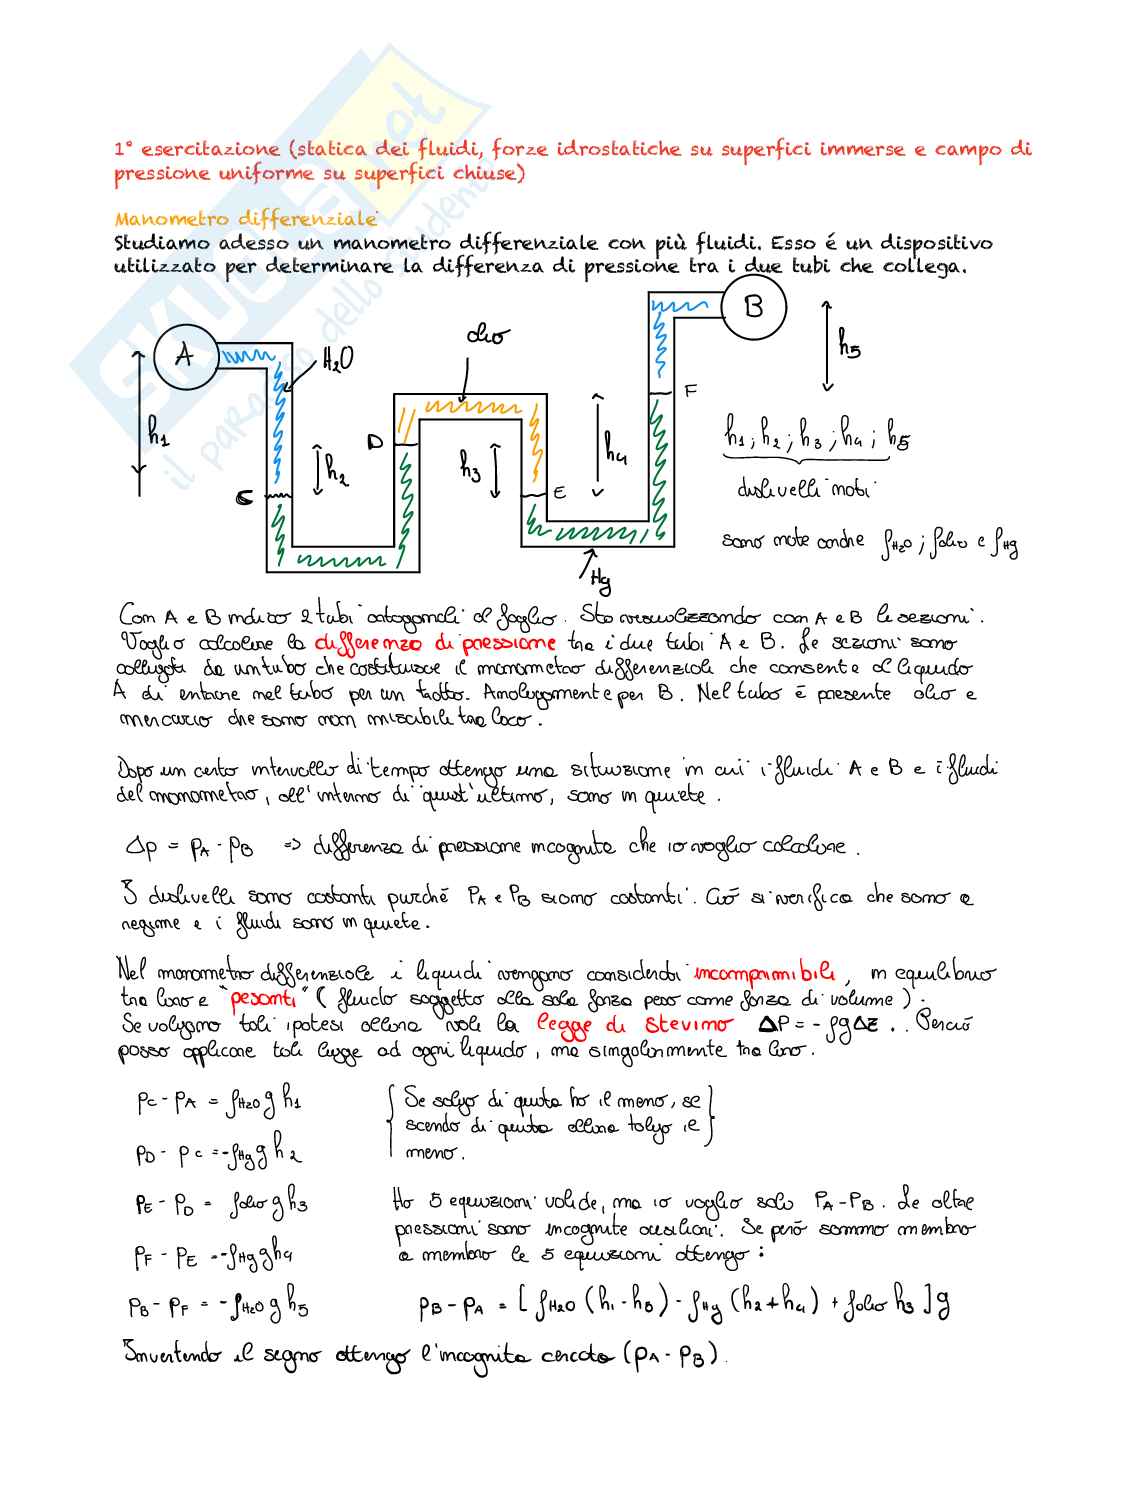 SKUOLA.net
il paradiso dello studente
1° esercitazione (statica dei fluidi, forze idrostatiche su superfici immerse e campo di
pressione uniforme su superfici chiuse)
Manometro differenziale
Studiamo adesso un manometro differenziale con più fluidi. Esso é un dispositivo
utilizzato per determinare la differenza di pressione tra i due tubi che collega.
A
H2O
olio
B
h1
h2
h3
h4
h5
C
D
E
F
Hg
h1, h2, h3, h4, h5
dislivelli noti
sono note anche ρH2O ; ρolio e ρHg
Con A e B indico 2 tubi ortogonali al foglio. Sto visualizzando con A e B le sezioni.
Voglio calcolare la differenza di pressione tra i due tubi A e B. Le sezioni sono
collegati da un tubo che costituisce il manometro differenziali che consente al liquido
A di entrare nel tubo per un tratto. Analogamente per B. Nel tubo é presente olio e
mercurio che sono non miscibili tra loro.
Dopo un certo intervallo di tempo ottengo una situazione in cui i fluidi A e B e i fluidi
del manometro, all'interno di quest'ultimo, sono in quiete.
Δp = pA - pB => differenza di pressione incognita che io voglio calcolare.
I dislivelli sono costanti purché PA e PB siano costanti. Ció si verifica che sono a
regime e i fluidi sono in quiete.
Nel manometro differenziale i liquidi vengono considerati incomprimibili, in equilibrio
tra loro e "pesanti" (fluido soggetto alla sola forza peso come forza di volume).
Se valgono tali ipotesi allora vale la legge di Stevino ΔP = - ρgΔz. Perció
posso applicare tale legge ad ogni liquido, ma singolarmente tra loro.
pC - pA = ρH2O g h1
pD - pC = -ρHg g h2
pE - pD = ρolio g h3
pF - pE = -ρHg g h4
pB - pF = -ρH2O g h5
{ Se salgo di quota ho il meno, se
scendo di quota allora tolgo il
meno. }
Ho 5 equazioni valide, ma io voglio solo PA-PB. Le altre
pressioni sono incognite ausiliari. Se peró sommo membro
a membro le 5 equazioni ottengo:
pB - pA = [ρH2O (h1-h5) - ρHg (h2+h4) + ρolio h3] g
Invertendo il segno ottengo l'incognita cercata (pA - pB).